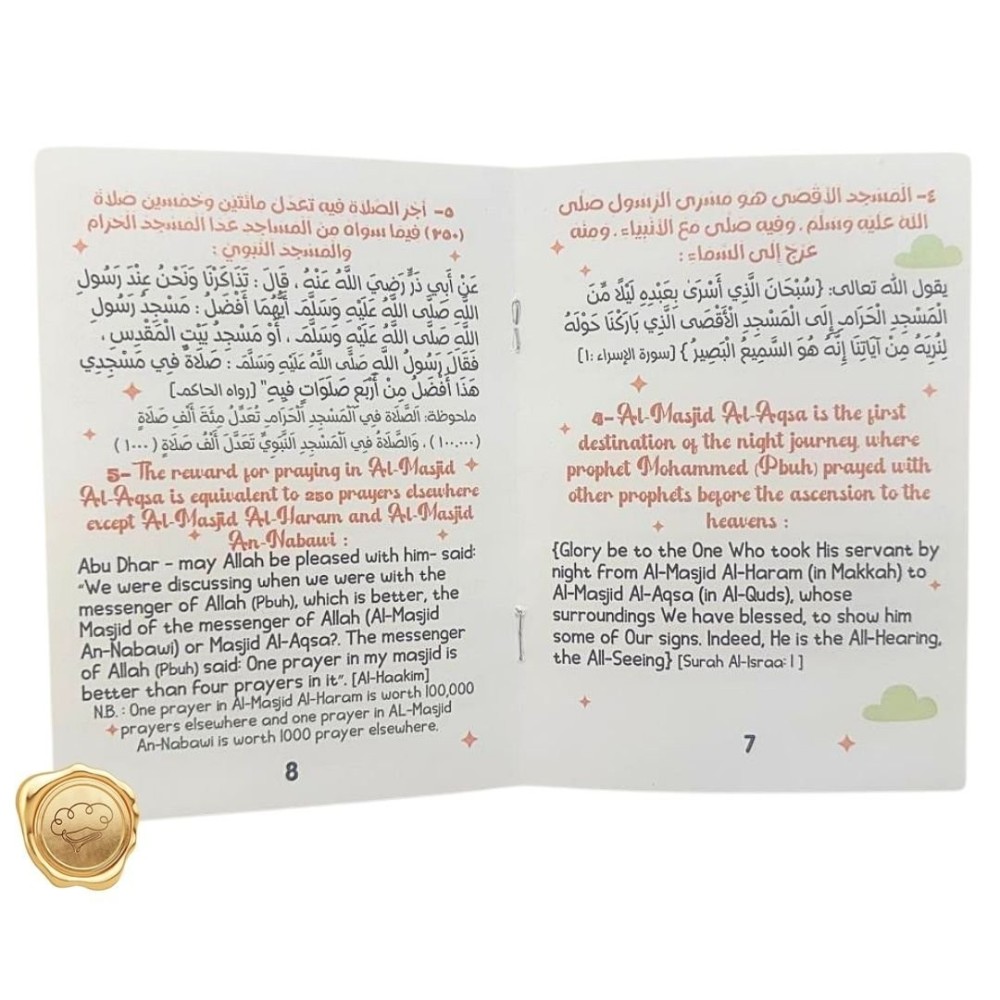 ٤- المسجد الأقصى هو مسرى الرسول صلى
الله عليه وسلم، وفيه صلى مع الأنبياء، ومنه
عرج إلى السماء:
يقول الله تعالى: {سُبْحَانَ الَّذِي أَسْرَىٰ بِعَبْدِهِ لَيْلًا مِّنَ
الْمَسْجِدِ الْحَرَامِ إِلَى الْمَسْجِدِ الْأَقْصَى الَّذِي بَارَكْنَا حَوْلَهُ
لِنُرِيَهُ مِنْ آيَاتِنَا إِنَّهُ هُوَ السَّمِيعُ الْبَصِيرُ} [سورة الإسراء :١]
4- Al-Masjid Al-Aqsa is the first
destination of the night journey, where
prophet Mohammed (Pbuh) prayed with
other prophets before the ascension to the
heavens :
{Glory be to the One Who took His servant by
night from Al-Masjid Al-Haram (in Makkah) to
Al-Masjid Al-Aqsa (in Al-Quds), whose
surroundings We have blessed, to show him
some of Our signs. Indeed, He is the All-Hearing,
the All-Seeing} [Surah Al-Israa: 1]
7
٥- أجر الصلاة فيه تعدل مائتين وخمسين صلاة
(٢٥٠) فيما سواه من المساجد عدا المسجد الحرام
والمسجد النبوي :
عَنْ أَبِي ذَرٍّ رَضِيَ اللَّهُ عَنْهُ ، قَالَ : تَذَاكَرْنَا وَنَحْنُ عِنْدَ رَسُولِ
اللَّهِ صَلَّى اللَّهُ عَلَيْهِ وَسَلَّمَ أَيُّهُمَا أَفْضَلُ : مَسْجِدُ رَسُولِ
اللَّهِ صَلَّى اللَّهُ عَلَيْهِ وَسَلَّمَ ، أَوْ مَسْجِدُ بَيْتِ الْمَقْدِسِ ،
فَقَالَ رَسُولُ اللَّهِ صَلَّى اللَّهُ عَلَيْهِ وَسَلَّمَ : صَلَاةٌ فِي مَسْجِدِي
هَذَا أَفْضَلُ مِنْ أَرْبَعِ صَلَوَاتٍ فِيهِ" [رواه الحاكم]
ملحوظة: الصَّلَاةُ فِي الْمَسْجِدِ الْحَرَامِ تُعَدِّلُ مِئَةَ أَلْفِ صَلَاةٍ
(١٠٠,٠٠٠) ، وَالصَّلَاةُ فِي الْمَسْجِدِ النَّبَوِيِّ تَعْدَلُ أَلْفَ صَلَاةٍ (١٠٠٠)
5- The reward for praying in Al-Masjid
Al-Aqsa is equivalent to 250 prayers elsewhere
except Al-Masjid Al-Haram and Al-Masjid
An-Nabawi :
Abu Dhar - may Allah be pleased with him- said:
"We were discussing when we were with the
messenger of Allah (Pbuh), which is better, the
Masjid of the messenger of Allah (Al-Masjid
An-Nabawi) or Masjid Al-Aqsa?. The messenger
of Allah (Pbuh) said: One prayer in my masjid is
better than four prayers in it". [Al-Haakim]
N.B. : One prayer in Al-Masjid Al-Haram is worth 100,000
prayers elsewhere and one prayer in AL-Masjid
An-Nabawi is worth 1000 prayer elsewhere.
8